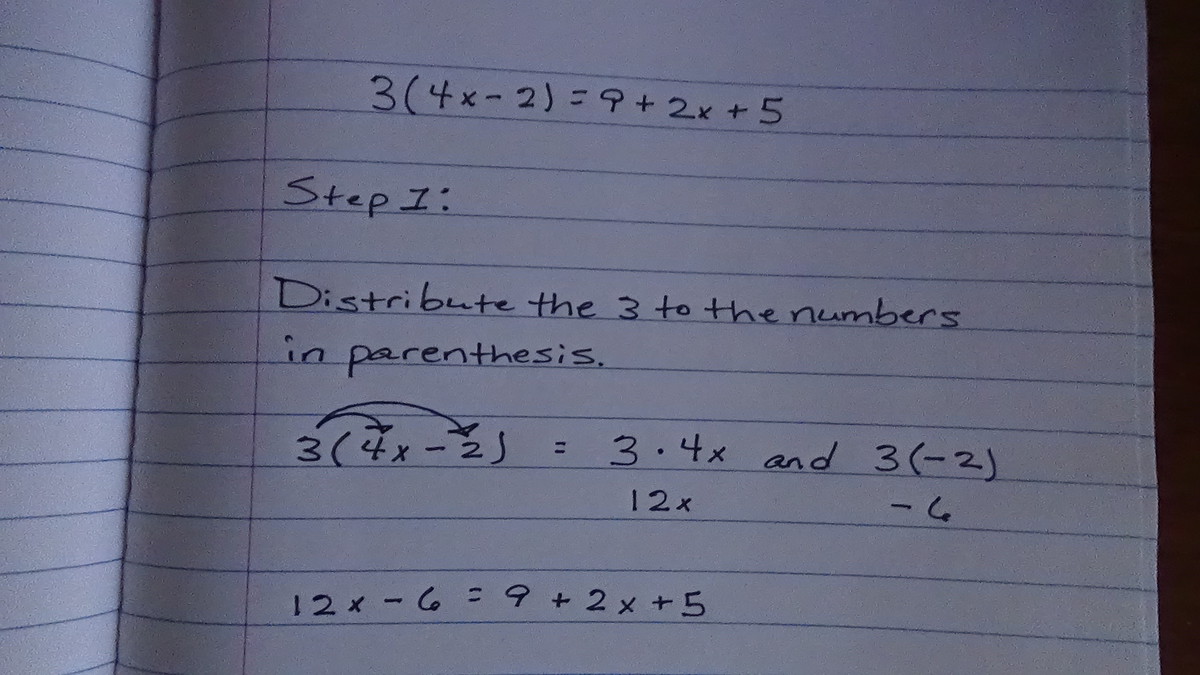 3(4x-2)=9+2x+5
Step I:
Distribute the 3 to the numbers
in parenthesis.
3(4x-2) = 3·4x and 3(-2)
12x -6
12x-6=9+2x+5